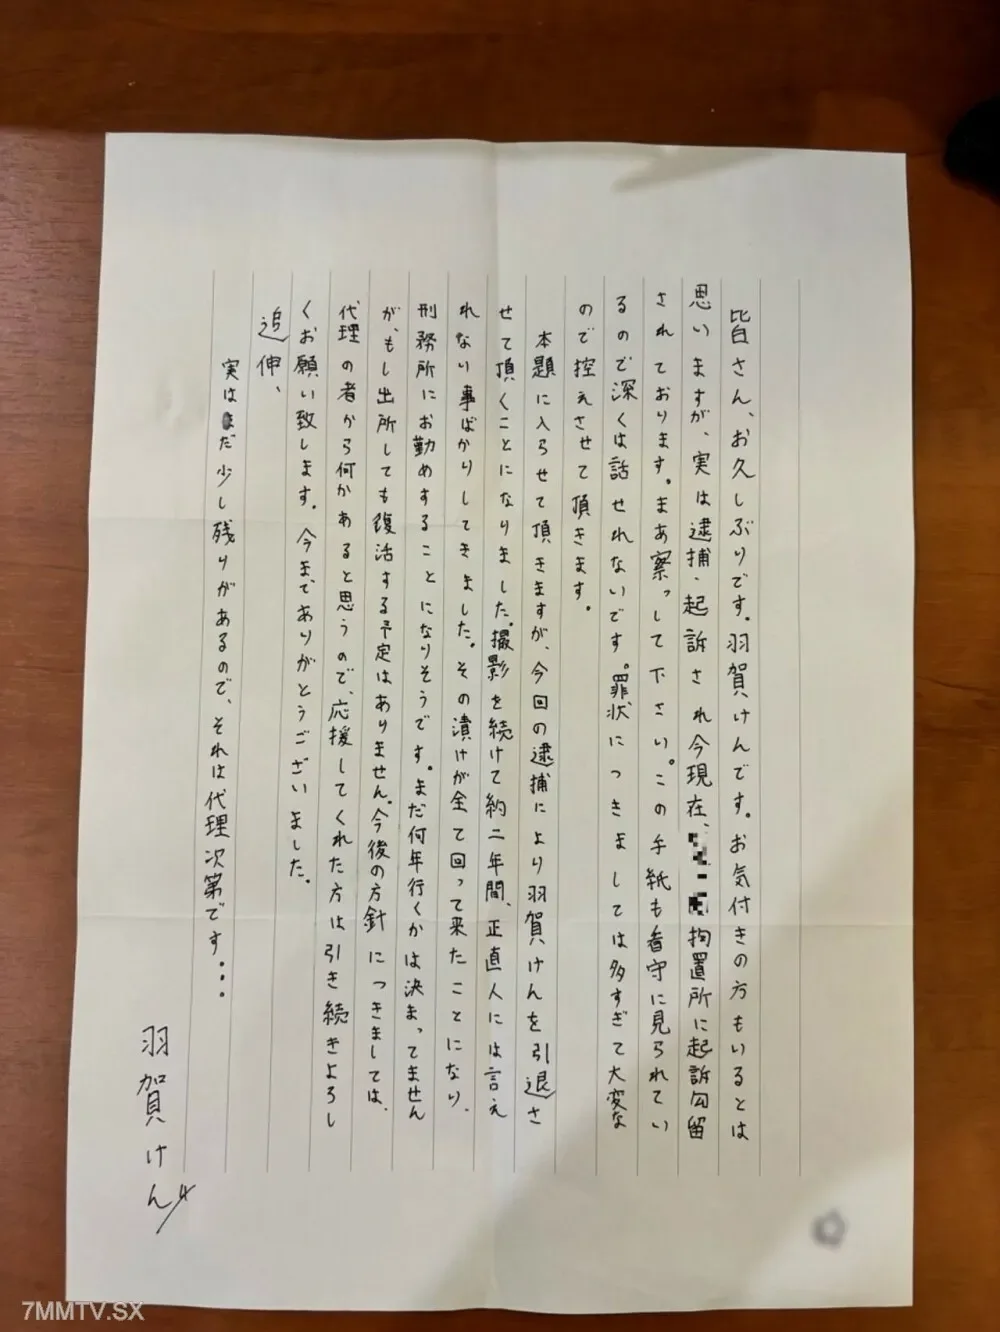 皆さん、お久しぶりです。羽賀けんです。お気付きの方もいるとは
思いますが、実は逮捕、起訴され今現在、拘置所に起訴勾留
されております。まあ察っして下さい。この手紙も看守に見られてい
るので深くは話せれないです。罪状につきましては多すぎて大変な
ので控えさせて頂きます。
本題に入らせて頂きますが、今回の逮捕により羽賀けんを引退さ
せて頂くことになりました。撮影を続けて約二年間、正直人には言え
れない事ばかりしてきました。その漬けが全て回って来たことになり、
刑務所にお勤めすることになりそうです。まだ何年行くかは決まってません
が、もし出所しても復活する予定はありません。今後の方針につきましては、
代理の者から何かあると思うので、応援してくれた方は引き続きよろし
くお願い致します。今までありがとうございました。
追伸、
実はまだ少し残りがあるので、それは代理次第です...
羽賀けん
7MMTV.SX